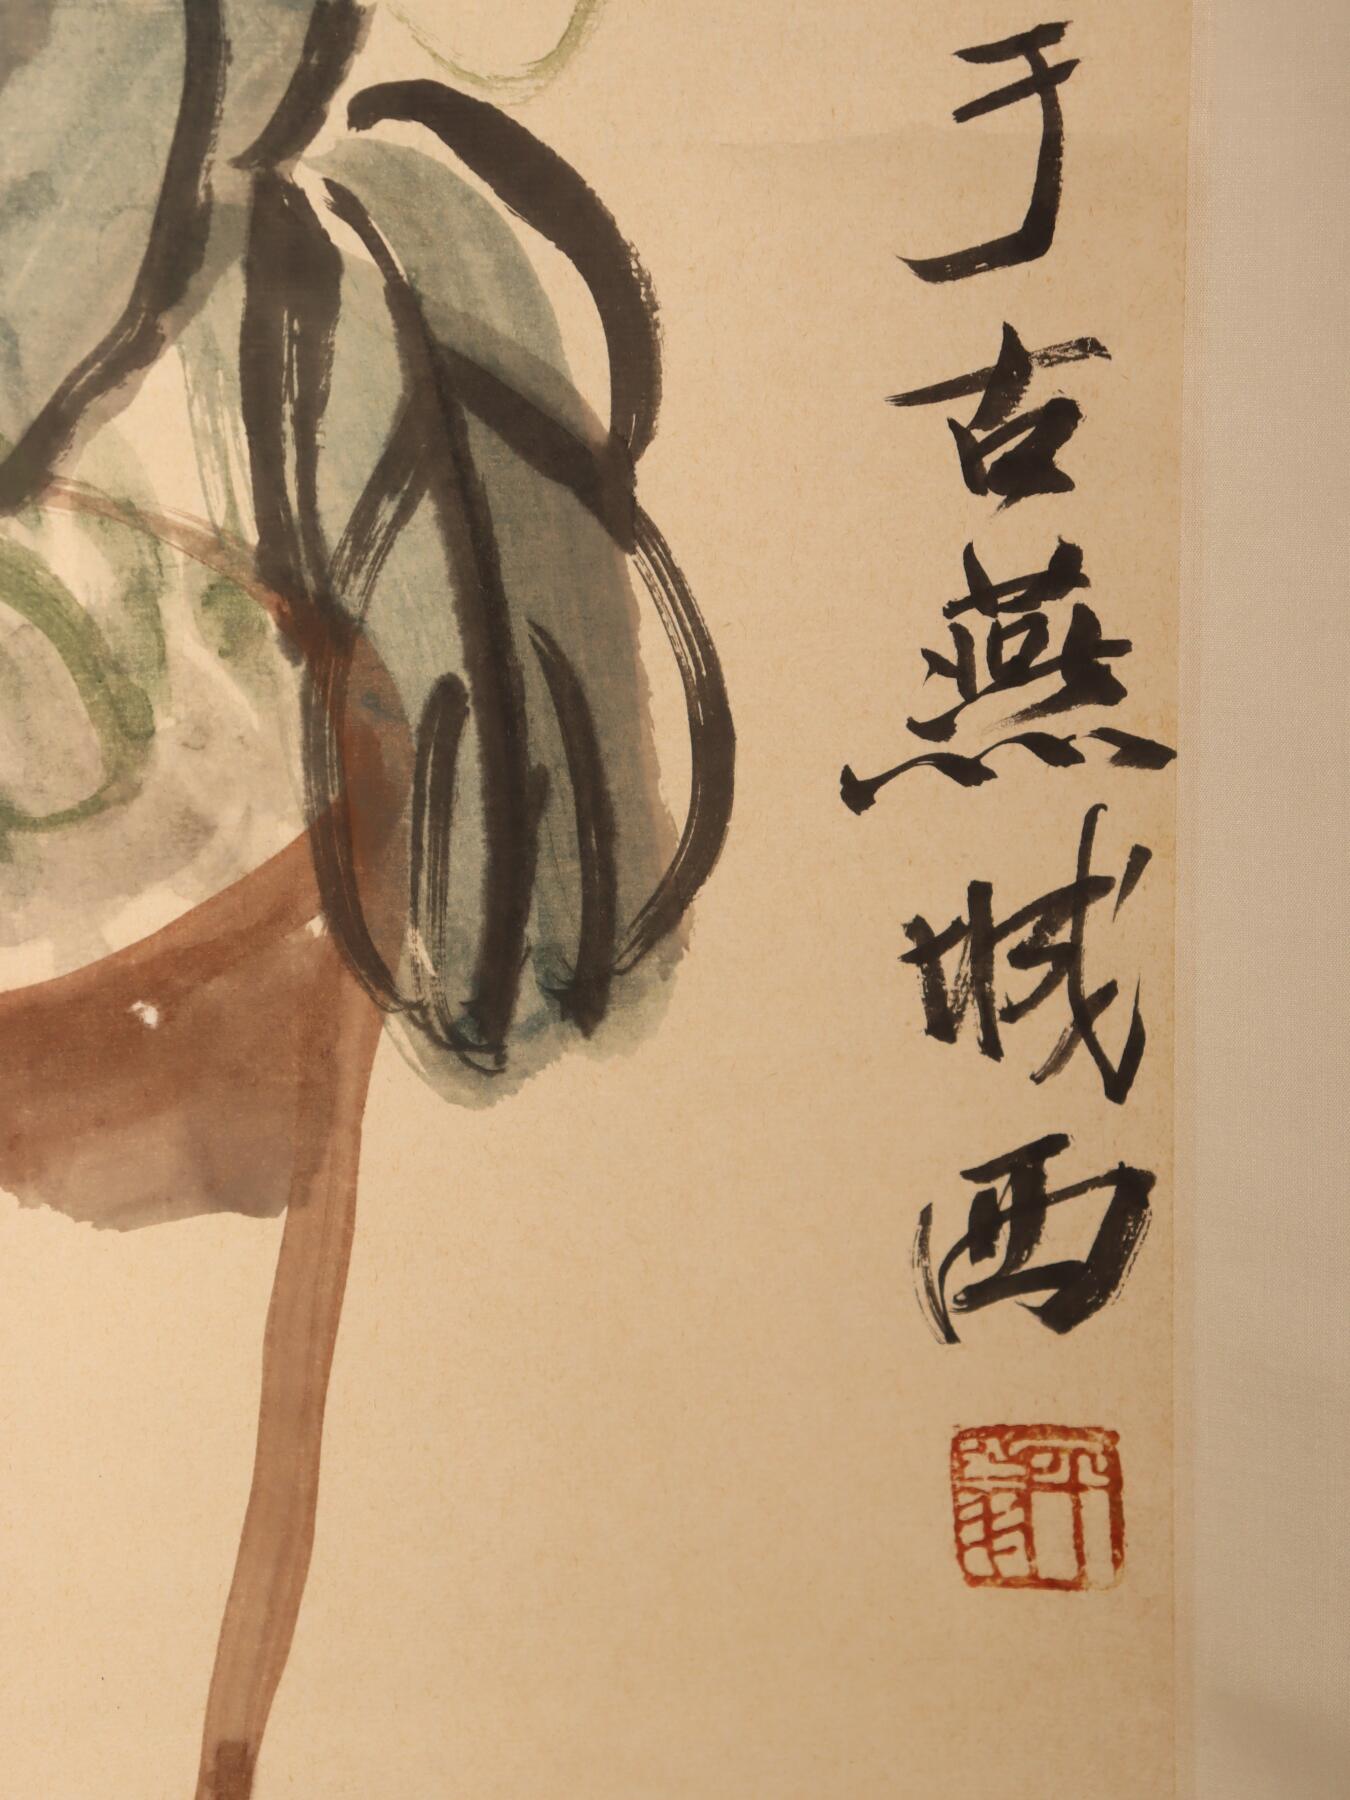 于古燕城西